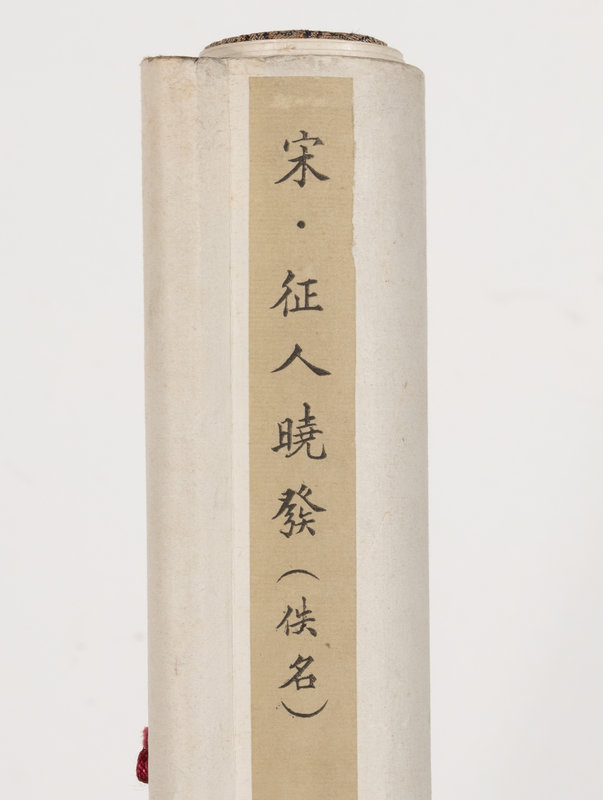 宋·征人曉發(佚名)